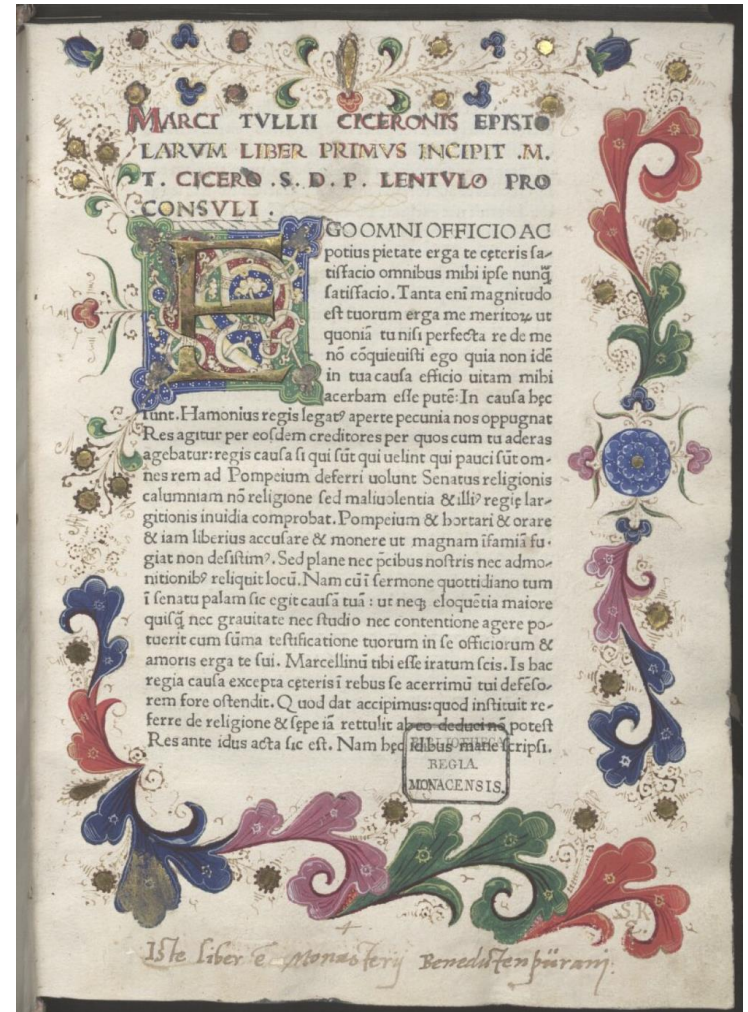 MARCI TVLLII CICERONIS EPISTO
LARVM LIBER PRIMVS INCIPIT .M.
T. CICERO .S. D. P. LENTVLO PRO
CONSVLI .
EGO OMNI OFFICIO AC
potius pietate erga te cęteris sa-
tisfacio omnibus mihi ipse nunꝗ̃
satisfacio. Tanta eni magnitudo
est tuorum erga me meritoꝝ ut
quoniā tu nisi perfecta re de me
nō cōquieuisti ego quia non idē
in tua causa efficio uitam mihi
acerbam esse putē: In causa hęc
sunt. Hamonius regis legatꝰ aperte pecunia nos oppugnat
Res agitur per eosdem creditores per quos cum tu aderas
agebatur: regis causa si qui sūt qui uelint qui pauci sūt om-
nes rem ad Pompeium deferri uolunt Senatus religionis
calumniam nō religione sed maliuolentia & illiꝰ regię lar-
gitionis inuidia comprobat. Pompeium & hortari & orare
& iam liberius accusare & monere ut magnam īfamiā fu-
giat non desistimꝰ. Sed plane nec p̄cibus nostris nec admo-
nitionibꝰ reliquit locū. Nam cū ī sermone quottidiano tum
ī senatu palam sic egit causā tuā : ut neqꝫ eloquētia maiore
quisꝗ̃ nec grauitate nec studio nec contentione agere po-
tuerit cum sūma testificatione tuorum in se officiorum &
amoris erga te sui. Marcellinū tibi esse iratum scis. Is hac
regia causa excepta cęteris ī rebus se acerrimū tui defēso-
rem fore ostendit. Quod dat accipimus: quod instituit re-
ferre de religione & sępe iā rettulit ab eo deduci nō potest
Res ante idus acta sic est. Nam hęc idibus mane scripsi.
BIBLIOTHECA
REGIA
MONACENSIS.
S.K
2
Iste liber ē Monasterij Benedictenpürani.